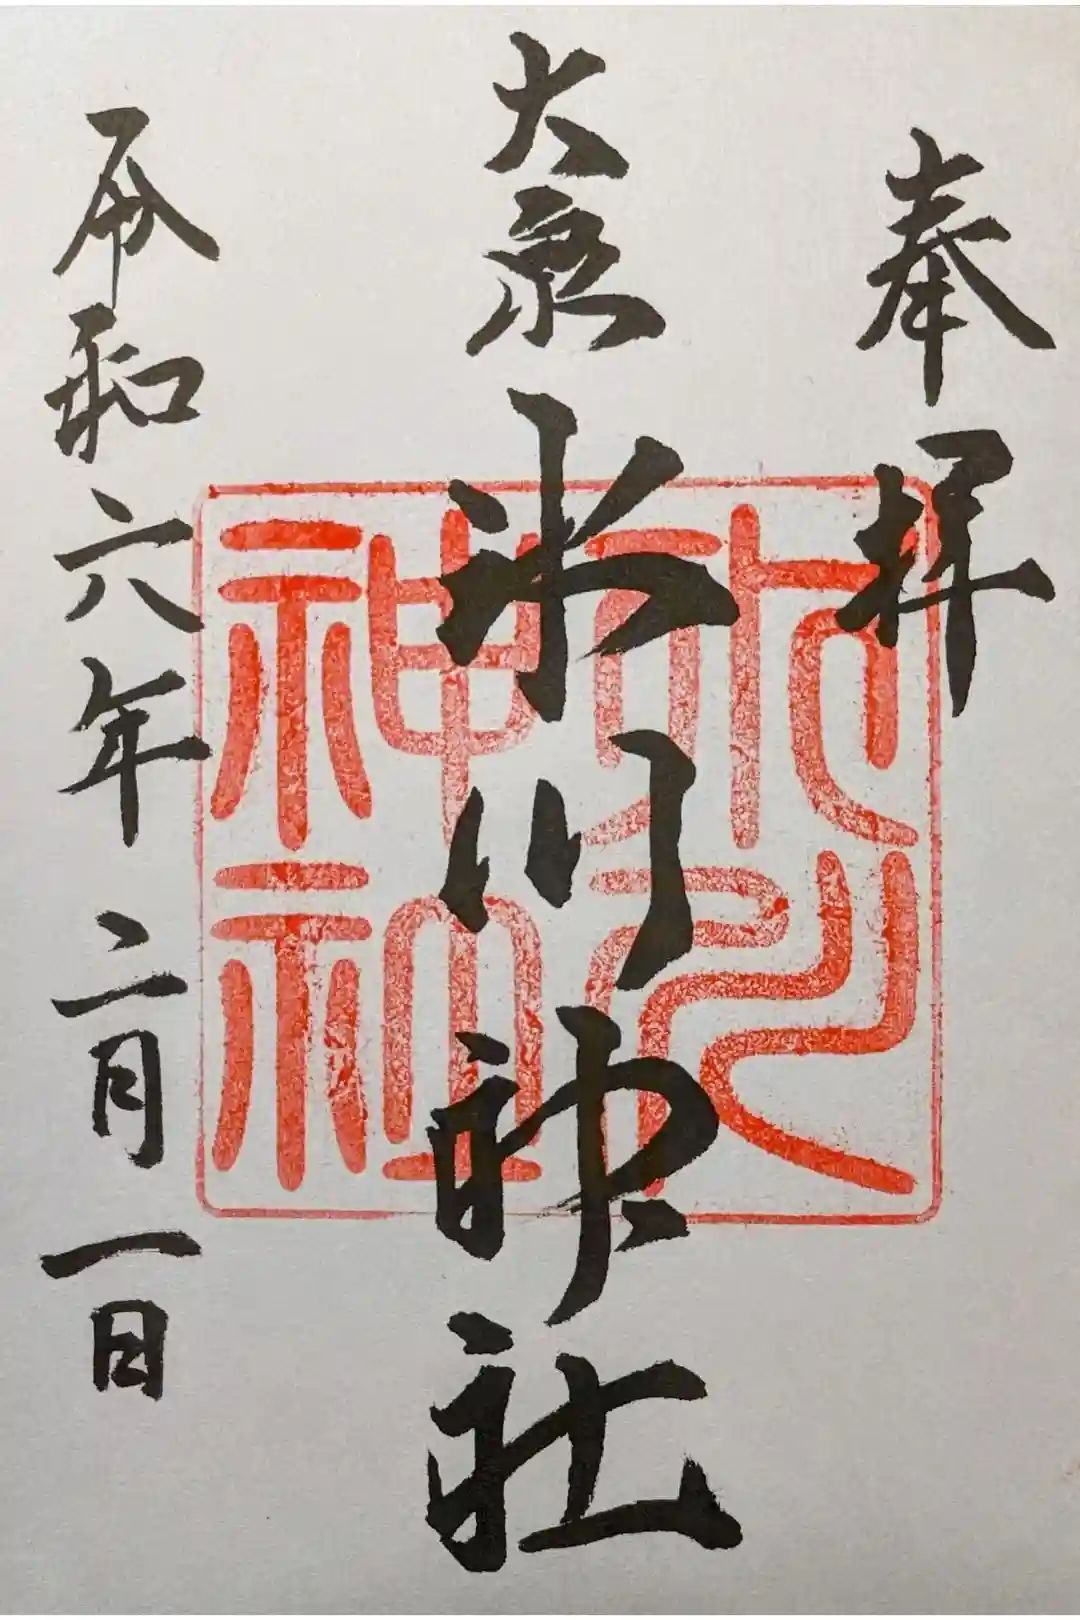 奉拝
大泉
氷川神社
令和六年二月一日